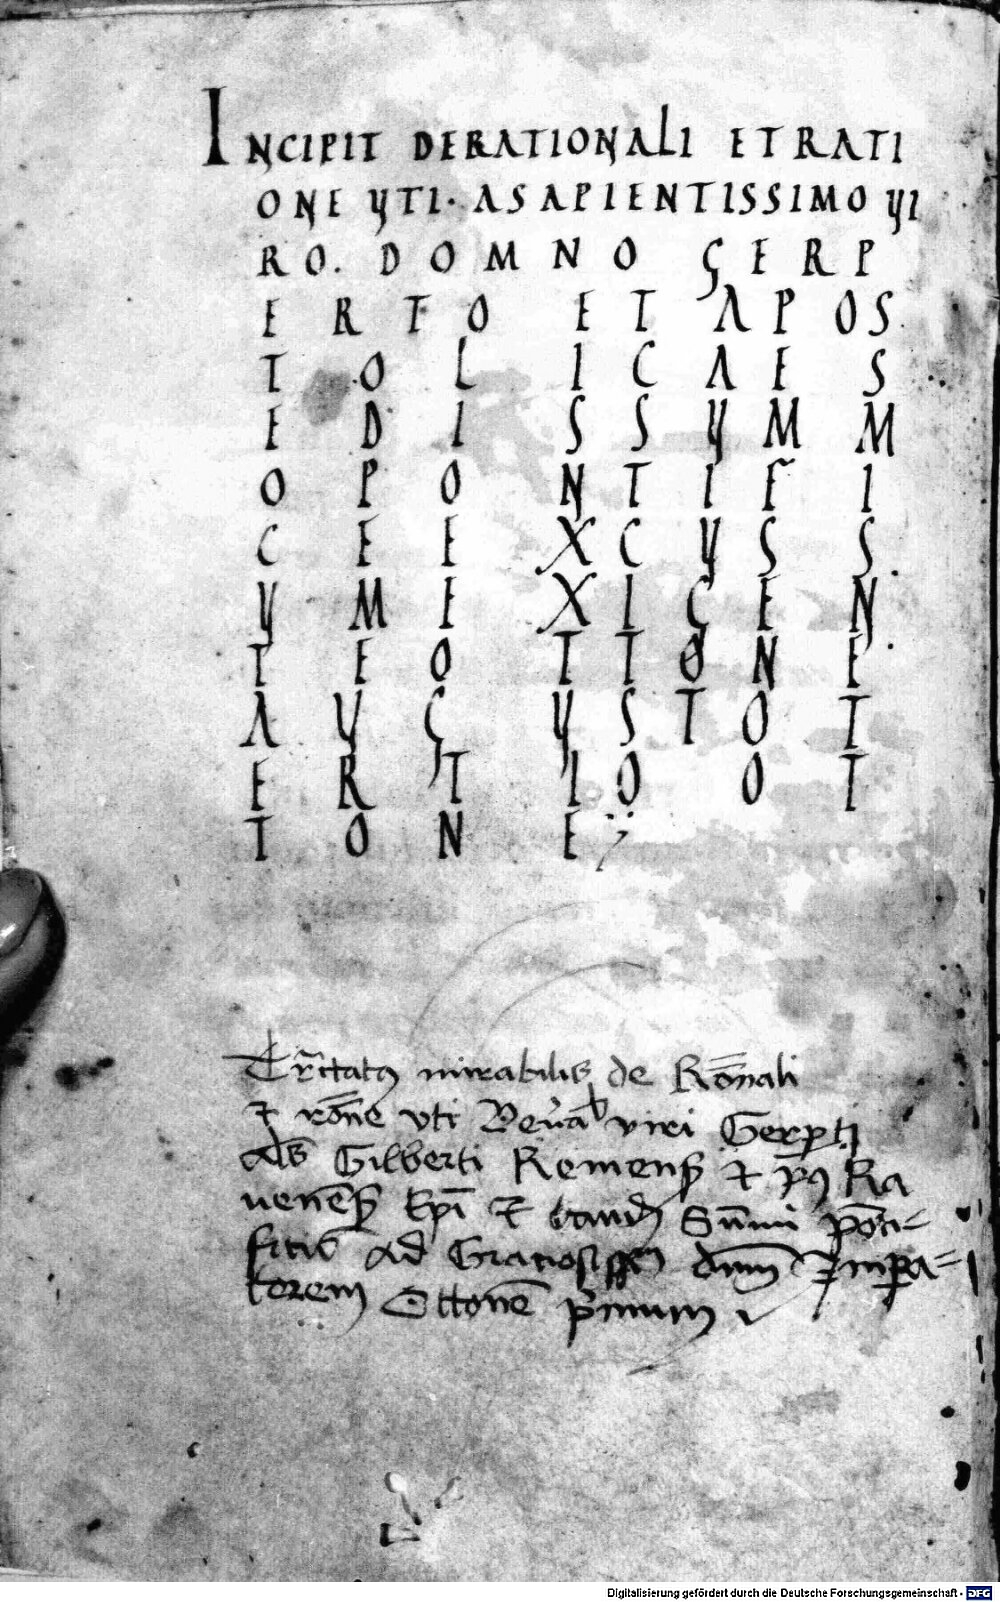 INCIPIT DERATIONALI ETRATI
ONE VTI· ASAPIENTISSIMO VI
RO. DOMNO GERP
ERTO ET APOS
TOLICAE S
EDIS SVMM
O PONTIFI
CE EXCVS S
VM EX IGEN
TE OTTONE
AVGVSTO T
ERTIO OT
TONE;
Tractatꝯ mirabilis de Rōnali
⁊ rōne vti viri Gerperti
als Gilberti Remensis ⁊ pꝰ Ra
uenēs Epi ⁊ tandē Sūmi pōti=
ficis ad Graciosissm dnm Impa=
torem Ottonē primum
Digitalisierung gefördert durch die Deutsche Forschungsgemeinschaft - DFG